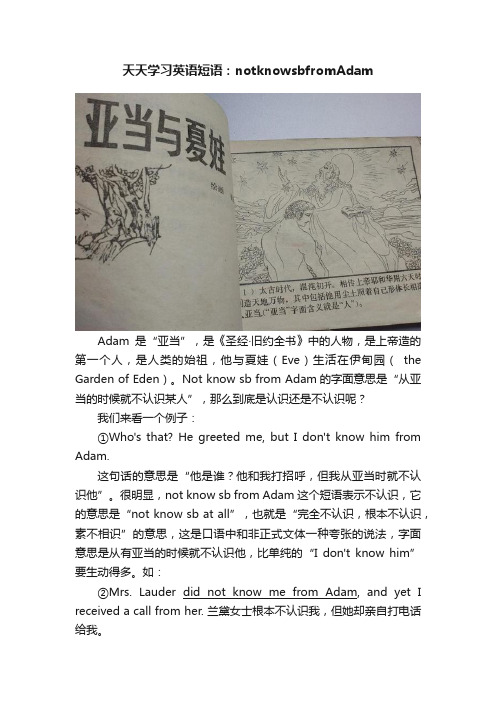 天天学习英语短语：notknowsbfromAdam
亚当与夏娃
（1）太古时代，混沌初开。相传上帝耶和华用六天时
造天地万物，其中包括他用尘土照着自己形体长相
人亚当（“亚当”字面含义就是“人”）。
Adam 是“亚当”，是《圣经·旧约全书》中的人物，是上帝造的
第一个人，是人类的始祖，他与夏娃（Eve）生活在伊甸园（ the
Garden of Eden）。Not know sb from Adam 的字面意思是“从亚
当的时候就不认识某人”，那么到底是认识还是不认识呢？
我们来看一个例子：
①Who's that? He greeted me, but I don't know him from
Adam.
这句话的意思是“他是谁？他和我打招呼，但我从亚当时就不认
识他”。很明显，not know sb from Adam 这个短语表示不认识，它
的意思是“not know sb at all”，也就是“完全不认识，根本不认识，
素不相识”的意思，这是口语中和非正式文体一种夸张的说法，字面
意思是从有亚当的时候就不认识他，比单纯的“I don't know him”
要生动得多。如：
②Mrs. Lauder did not know me from Adam, and yet I
received a call from her. 兰黛女士根本不认识我，但她却亲自打电话
给我。